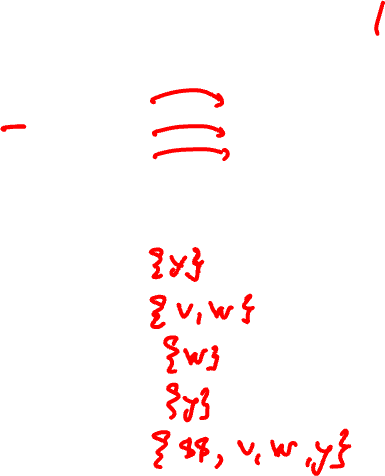 {y}
{v, w}
{w}
{y}
{$$, v, w, y}